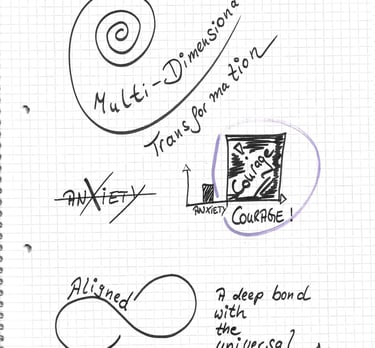 Multi-Dimensiona
Transformation
ANXIETY
Courage
ANXIETY
COURAGE!
Aligned
A deep bond
with
the
universal